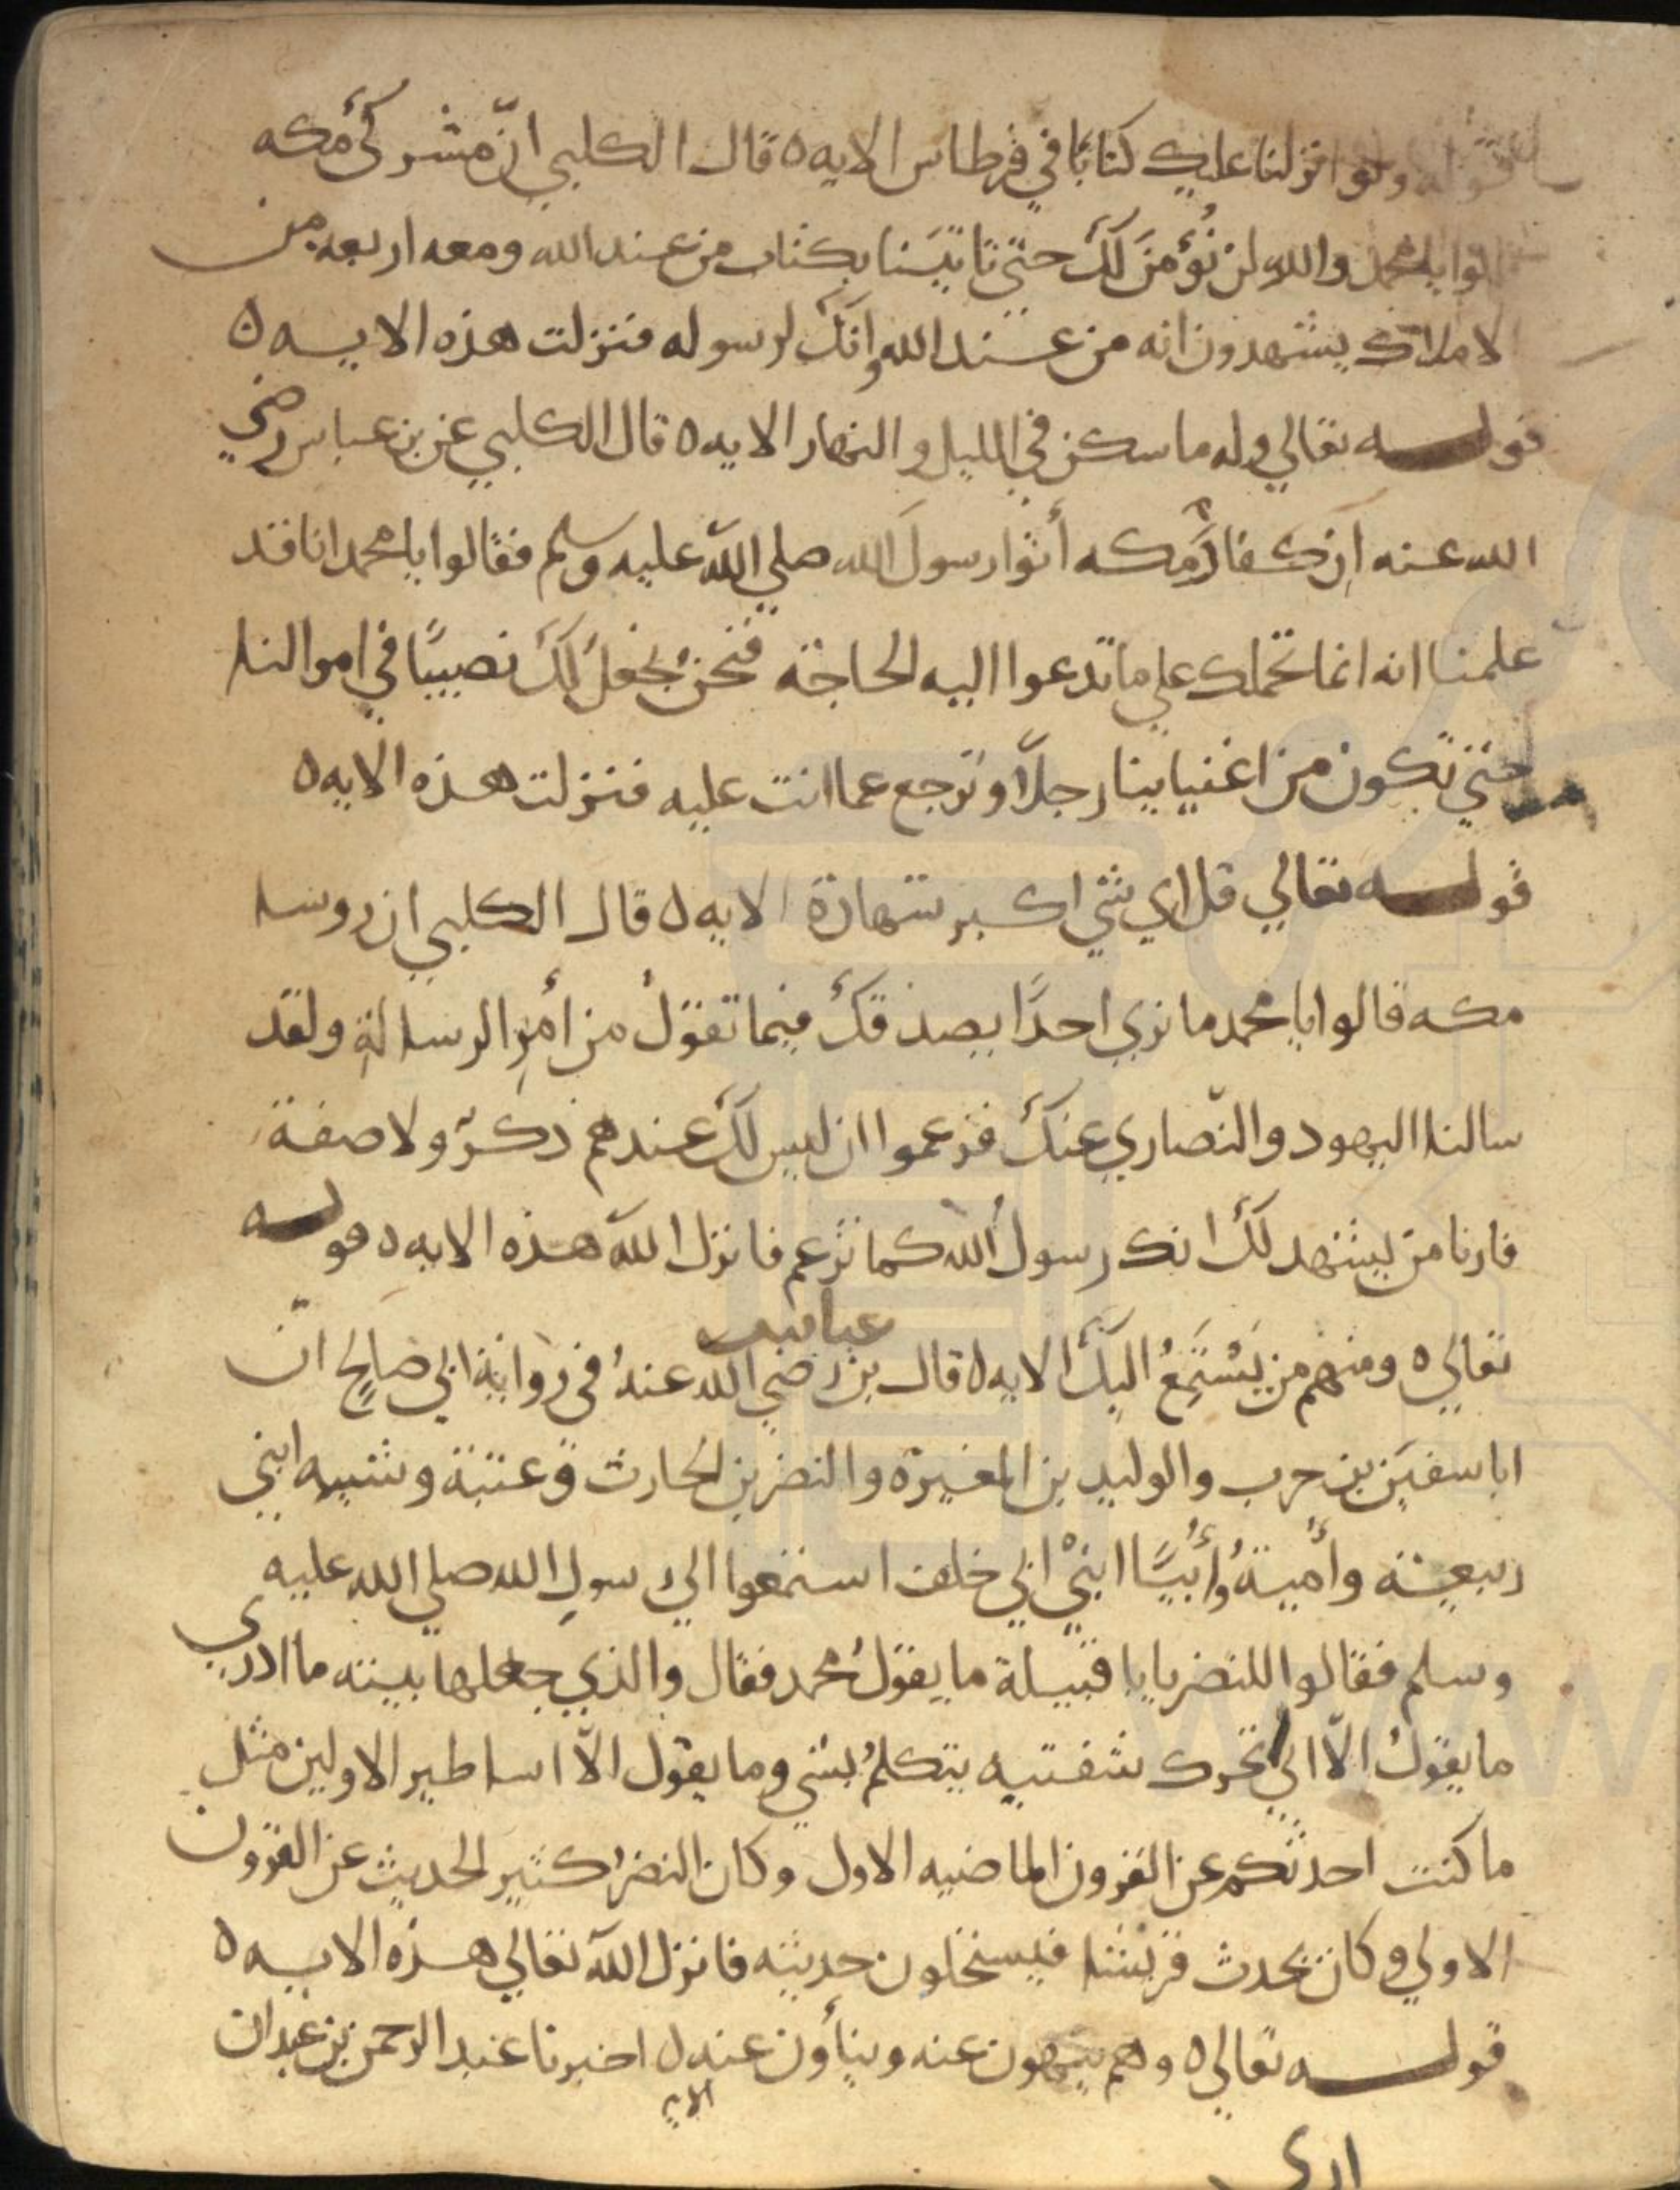 قوله ولو انزلنا عليك كتابًا في قرطاس الايه ٥ قال الكلبي انّ مشركي مكه
قالوا يا محمد والله لن نُؤمنَ لكَ حتي تاتيَنا بكتاب من عند الله ومعه اربعه من
الاملاك يشهدون انه من عند الله وانكَ لرسوله فنزلت هذه الايه ٥
قوله تعالي وله ما سكن في الليل والنهار الايه ٥ قال الكلبي عن بن عباس رضي
الله عنه ان كفارَ مكه أتوا رسولَ الله صلي اللّه عليه وسلم فقالوا يا محمد انا قد
علمنا انه انما تحملك علي ما تدعوا اليه الحاجة فنحن نجعلُ لكَ نصيبًا في اموالنا
حتي تكون من اغنيايينا رجلًا وترجع عما انت عليه فنزلت هذه الايه ٥
قوله تعالي قل اي شي اكبر شهادة الايه ٥ قال الكلبي ان روسا
مكه قالوا يا محمد ما نري احدًا يصدقكَ فيما تقولُ من أمرِ الرسالةِ ولقد
سالنا اليهود والنّصاري عنكَ فزعموا ان ليس لكَ عندهم ذكرٌ ولا صفة
فارنا من يشهد لكَ انك رسولُ اللّه كما تزعم فانزل اللّه هذه الايه ٥ قوله
تعالي ٥ ومنهم من يَسْتَمِعُ اليكَ الايه ٥ قال بن عباس رضي الله عنهُ في رواية ابي صالحٍ انّ
ابا سفيَن بن حرب والوليد بن المغيرة والنضر بن الحارث وعتبة وشيبه ابني
ربيعة وأُميةُ وأُبيًّا ابنيْ ابي خلف استمعوا الي رسولِ الله صلي الله عليه
وسلم فقالوا للنضر يا با قتيلة ما يقولُ محمد فقال والذي جعلها بيته ما ادري
ما يقولُ الّا اني اري تحرك شفتيه يتكلمُ بشي وما يقول الّا اساطير الاولين مثل
ما كنت احدثكم عن القرون الماضيه الاول وكان النضرُ كثير الحديث عن القرون
الاولي وكان يحدث قريشا فيستملحون حديثه فانزل اللّه تعالي هذه الايه ٥
قوله تعالي ٥ وهم ينهون عنه وينأون عنه الايه ٥ اخبرنا عبد الرحمن بن عبدان